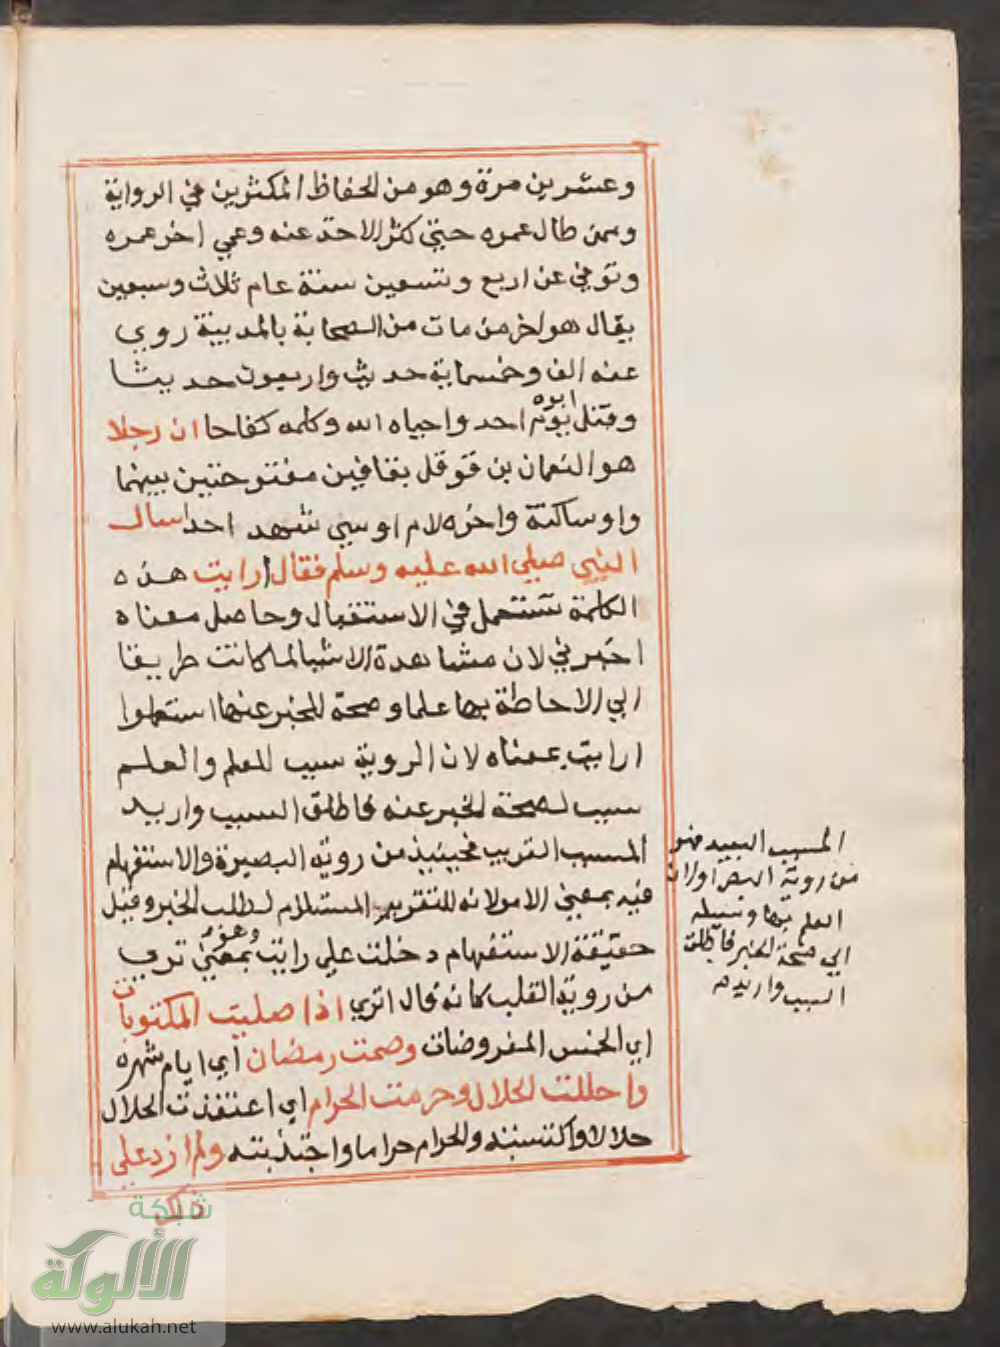 وعشرين مرة وهو من الحفاظ المكثرين في الرواية
وممن طال عمره حتي كثر الاخذ عنه وعمي اخر عمره
وتوفي عن اربع وتسعين سنة عام ثلاث وسبعين
يقال هو اخر من مات من الصحابة بالمدينة روي
عنه الف وخمسماية حديث واربعون حديثا
وقتل ابوه احد واحياه الله وكلمه كفاحا ان رجلا
هو النعمان بن قوقل بقافين مفتوحتين بينهما
واو ساكنة واخره لام اوسي شهد احدا سال
النبي صلي الله عليه وسلم فقال ارايت هذه
الكلمة تستعمل في الاستقبال وحاصل معناه
اخبرني لان مشاهدة الاشيا لما كانت طريقا
الي الاحاطة بها علما وصحة للخبر عنها استعملوا
ارايت بمعناه لان الروية سبب للعلم والعلم
سبب لصحة الخبر عنه فاطلق السبب واريد
المسبب القريب فحينيذ من روية البصيرة والاستفهام
فيه بمعني الامر لانه للتقرير المستلزم لطلب الخبر وقيل
حقيقة الاستفهام دخلت علي رايت بمعني تري
من روية القلب كانه قال اتري اذا صليت المكتوبات
اي الخمس المفروضات وصمت رمضان اي ايام شهره
واحللت الحلال وحرمت الحرام اي اعتقدت الحلال
حلالا واكتسبته والحرام حراما واجتنبته ولم ازد علي
ذلك
المسبب البعيد فهو
من روية البصر اولان
العلم بها وسيلة
الي صحة الخبر فاطلق
السبب واريد
شبكة
الألوكة
www.alukah.net